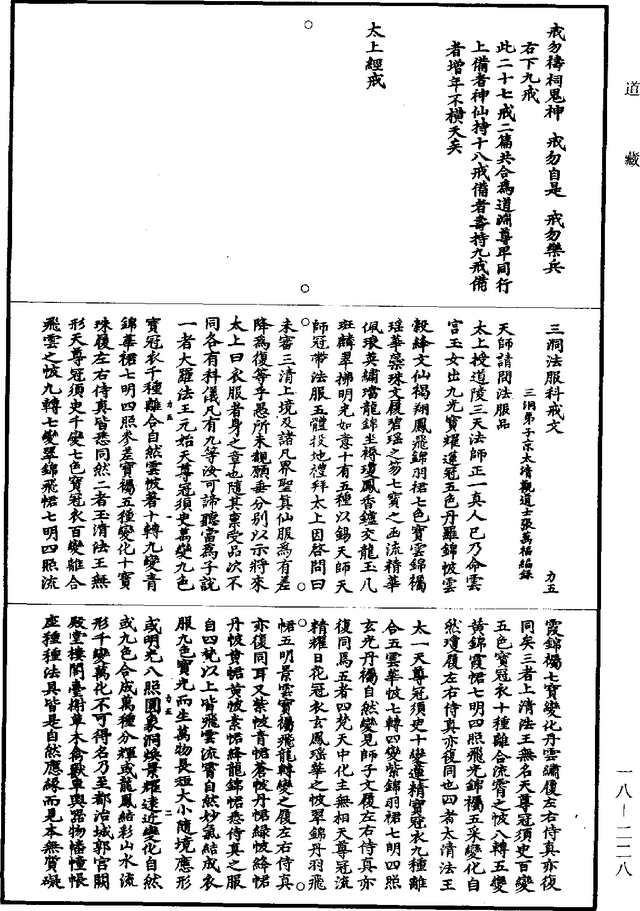 道藏
戒勿禱祠鬼神　戒勿自是　戒勿樂兵
右下九戒
此二十七戒二篇共合為道淵尊卑同行
上備者神仙持十八戒備者壽持九戒備
者增年不橫夭矣
太上經戒
三洞法服科戒文
三洞弟子京太清觀道士張萬福編錄
力五
天師請問法服品
太上授道陵三天法師正一真人已乃命雲
宮玉女出九光寶耀蓮冠五色丹羅錦帔雲
縠絳文仙褐翔鳳飛錦羽裙七色寶雲錦襡
瑤華藥珠文履碧瑤之笏七寶之函流精華
佩琅英繡璫龍錦坐褥瓊鳳香鑪交龍玉几
斑麟翠拂明光如意十有五種以錫天師天
師冠帶法服五體投地禮拜太上因啓問曰
未審三清上境及諸凡界聖真仙服為有差
降為復等乎愚所未覩願垂分別以示將來
太上曰衣服者身之章也隨其稟受品次不
同各有科儀凡有九等汝可諦聽當為子說
一者大羅法王元始天尊冠須史萬變九色
寶冠衣千種離合自然雲帔著十轉九變青
錦華裙七明四照參差寶襡五種變化十寶
珠履左右侍真皆悉同然二者玉清法王無
形天尊冠須史千變七色寶冠衣百變離合
飛雲之帔九轉七變翠錦飛裙七明四照流
霞錦襡七寶變化丹雲繡履左右侍真亦復
同矣三者上清法王無名天尊冠須史百變
五色寶冠衣十種離合流霄之帔八轉五變
黃錦霞裙七明四照飛光錦襡五采變化自
然瓊履左右侍真亦復同也四者太清法王
太一天尊冠須史十變蓮精寶冠衣九種離
合五雲華帔七轉四變紫錦羽裙七明四照
玄光丹襡自然變見師子文履左右侍真亦
復同焉五者四梵天中化主無相天尊冠流
精耀日花冠衣玄鳳瑶華之帔翠錦丹羽飛
裙五明景雲寶襡飛龍轉變之履左右侍真
亦復同耳又紫帔青裙蒼帔丹裙綠帔絳裙
丹帔黃裙黃帔素裙絳龍錦裙悉侍真之服
自四梵以上皆飛雲流霄自然妙氣結成衣
服九色寶光而生萬物長短大小隨境應形
或明光八照圓象洞煥景耀遠近變化自然
或九色合成萬種分輝或龍鳳結彩山水流
形千變萬化不可得名乃至都治城郭宮闕
殿堂樓閣臺榭草木禽獸車輿器物幡幢帳
座種種法具皆是自然應緣而見本無質礙
一八—二二八